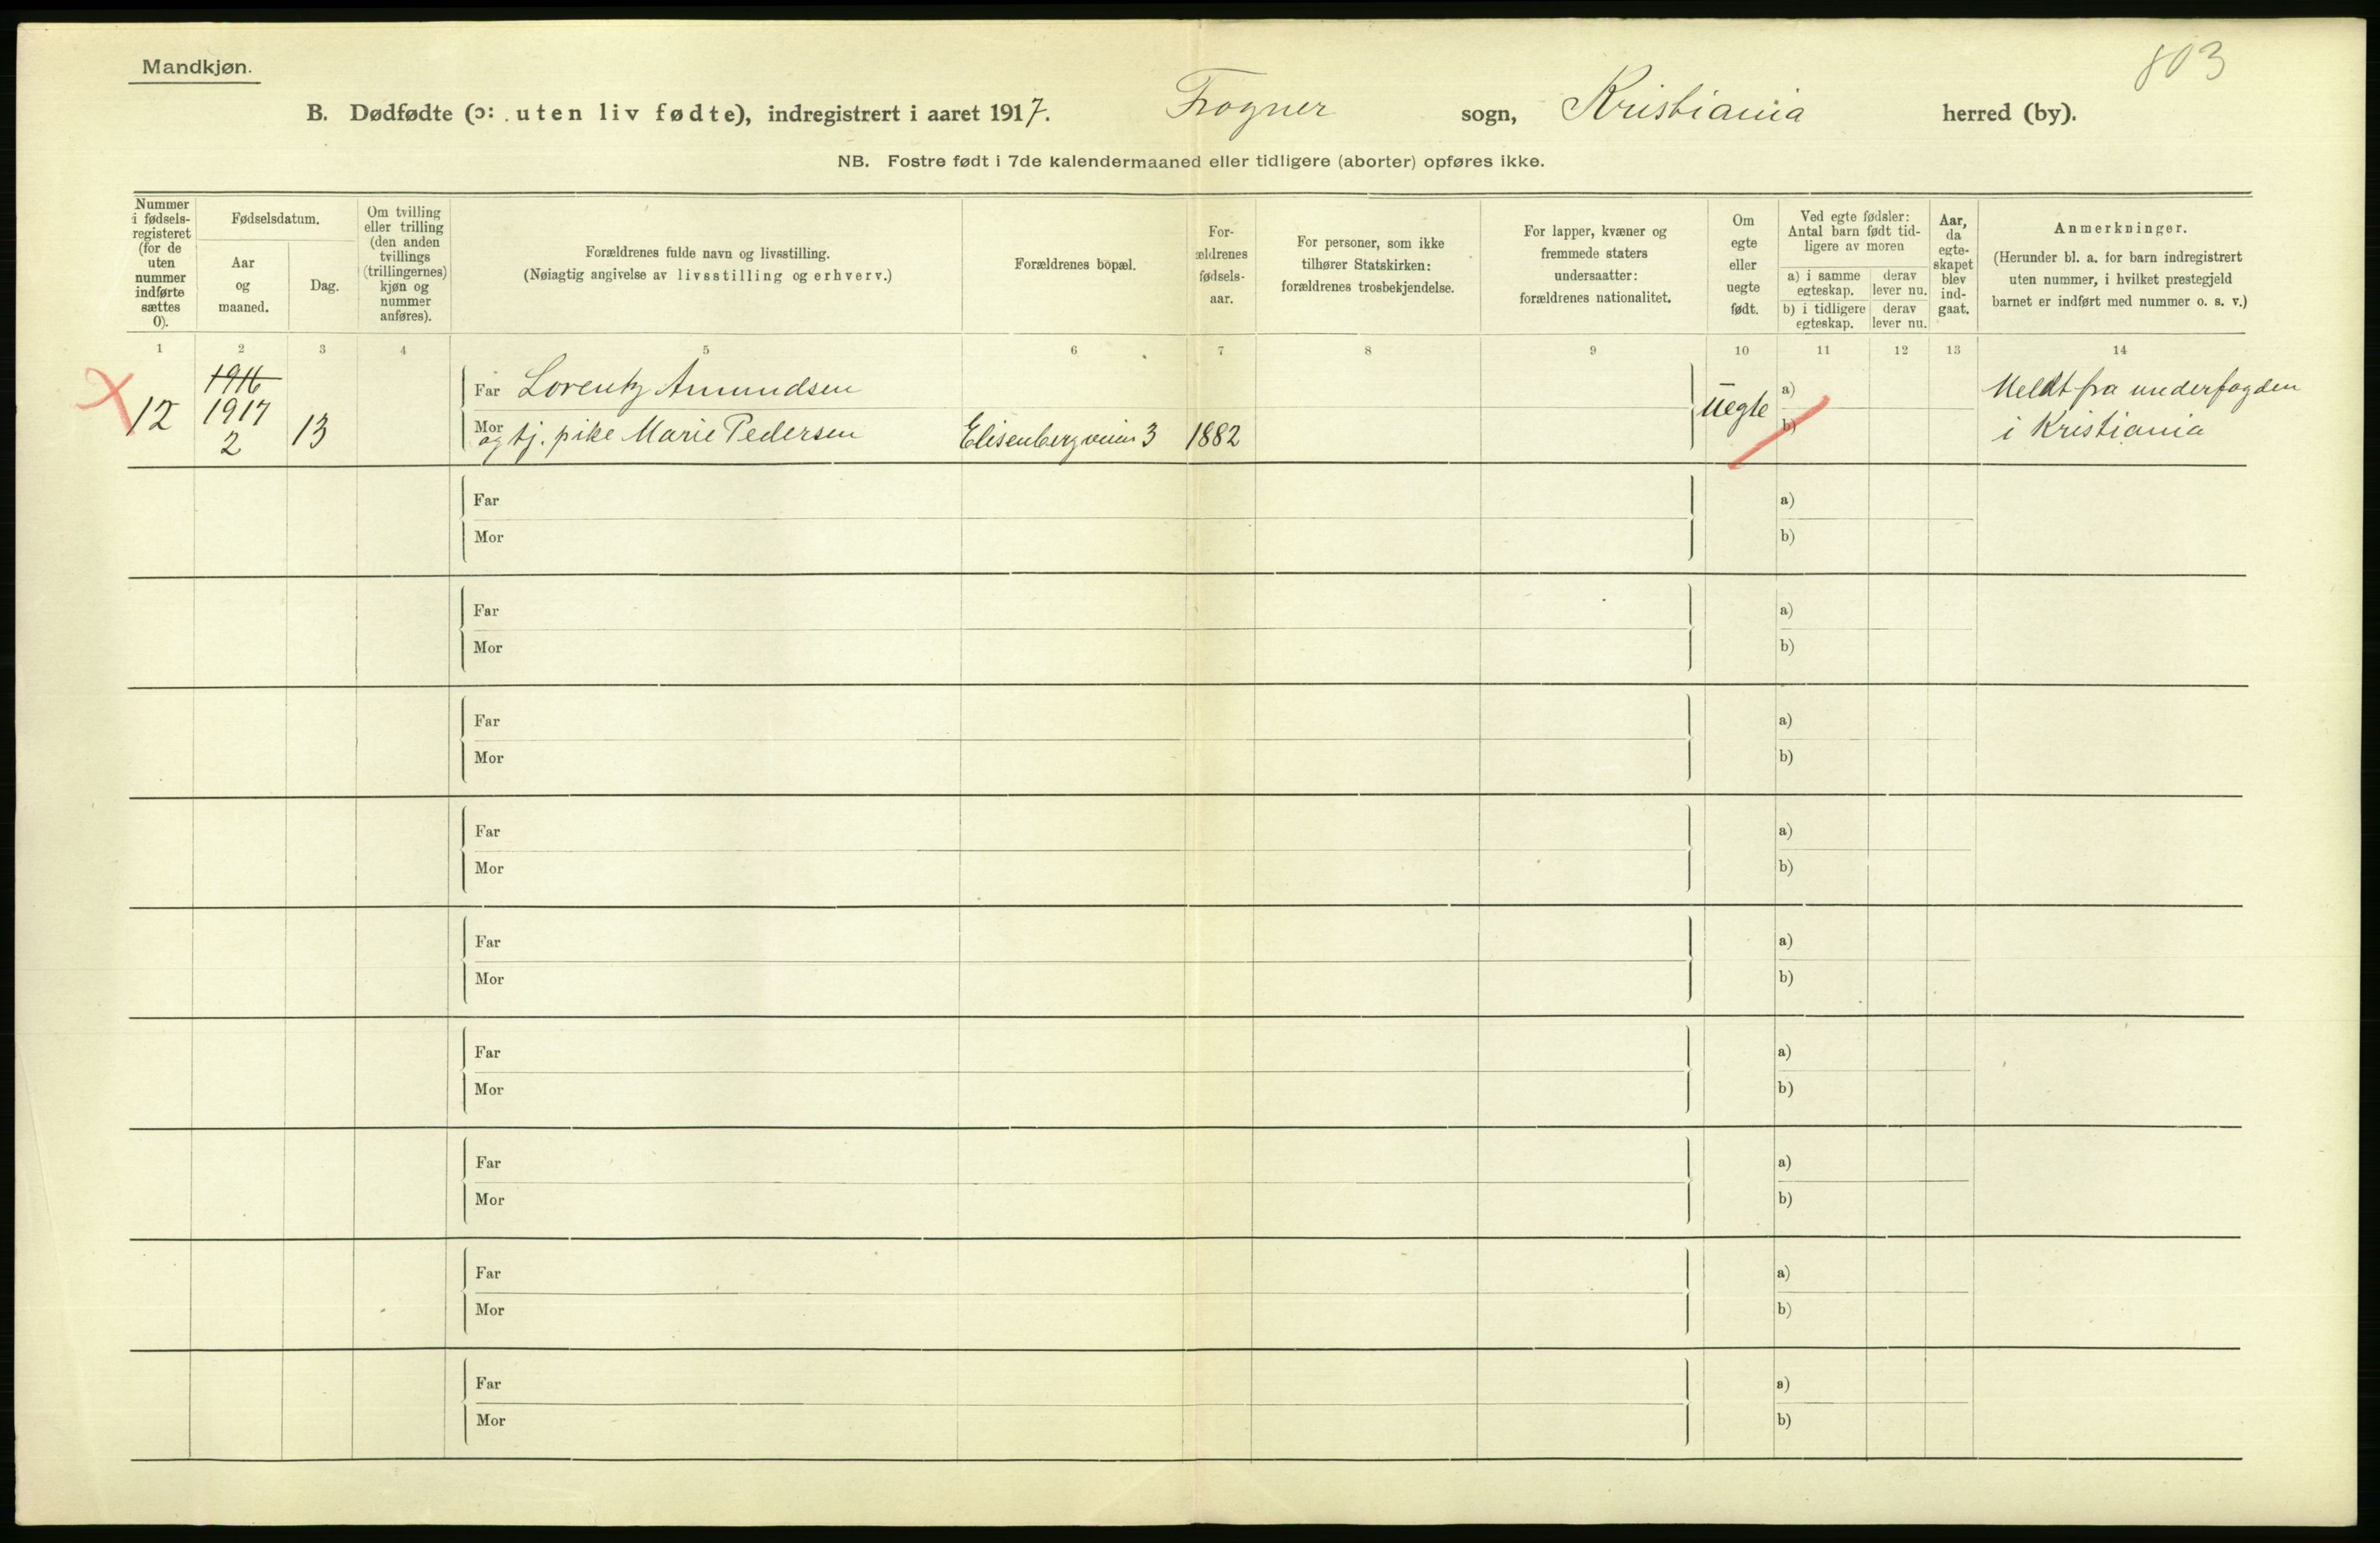 803
Mandkjøn.
B. Dødfødte (ɔ: uten liv fødte), indregistrert i aaret 1917. Frogner sogn, Kristiania herred (by).
NB. Fostre født i 7de kalendermaaned eller tidligere (aborter) opføres ikke.
Nummer
i fødsels-
registeret
(for de
uten
nummer
indførte
sættes
0).
Fødselsdatum.
Aar
og
maaned.
Dag.
Om tvilling
eller trilling
(den anden
tvillings
(trillingernes)
kjøn og
nummer
anføres).
Forældrenes fulde navn og livsstilling.
(Nøiagtig angivelse av livsstilling og erhverv.)
Forældrenes bopæl.
For-
ældrenes
fødsels-
aar.
For personer, som ikke
tilhører Statskirken:
forældrenes trosbekjendelse.
For lapper, kvæner og
fremmede staters
undersaatter:
forældrenes nationalitet.
Om
egte
eller
uegte
født.
Ved egte fødsler:
Antal barn født tid-
ligere av moren
a) i samme
egteskap.
derav
lever nu.
b) i tidligere
egteskap.
derav
lever nu.
Aar,
da
egte-
skapet
blev
ind-
gaat.
Anmerkninger.
(Herunder bl. a. for barn indregistrert
uten nummer, i hvilket prestegjeld
barnet er indført med nummer o. s. v.)
1 2 3 4 5 6 7 8 9 10 11 12 13 14
1916
12 1917
2 13
Far Lorentz Amundsen
Mor og tj. pike Marie Pedersen Elisenbergveien 3 1882
Uegte
a)
b)
Meldt fra underfogden
i Kristiania
Far a)
Mor b)
Far a)
Mor b)
Far a)
Mor b)
Far a)
Mor b)
Far a)
Mor b)
Far a)
Mor b)
Far a)
Mor b)
Far a)
Mor b)
Far a)
Mor b)